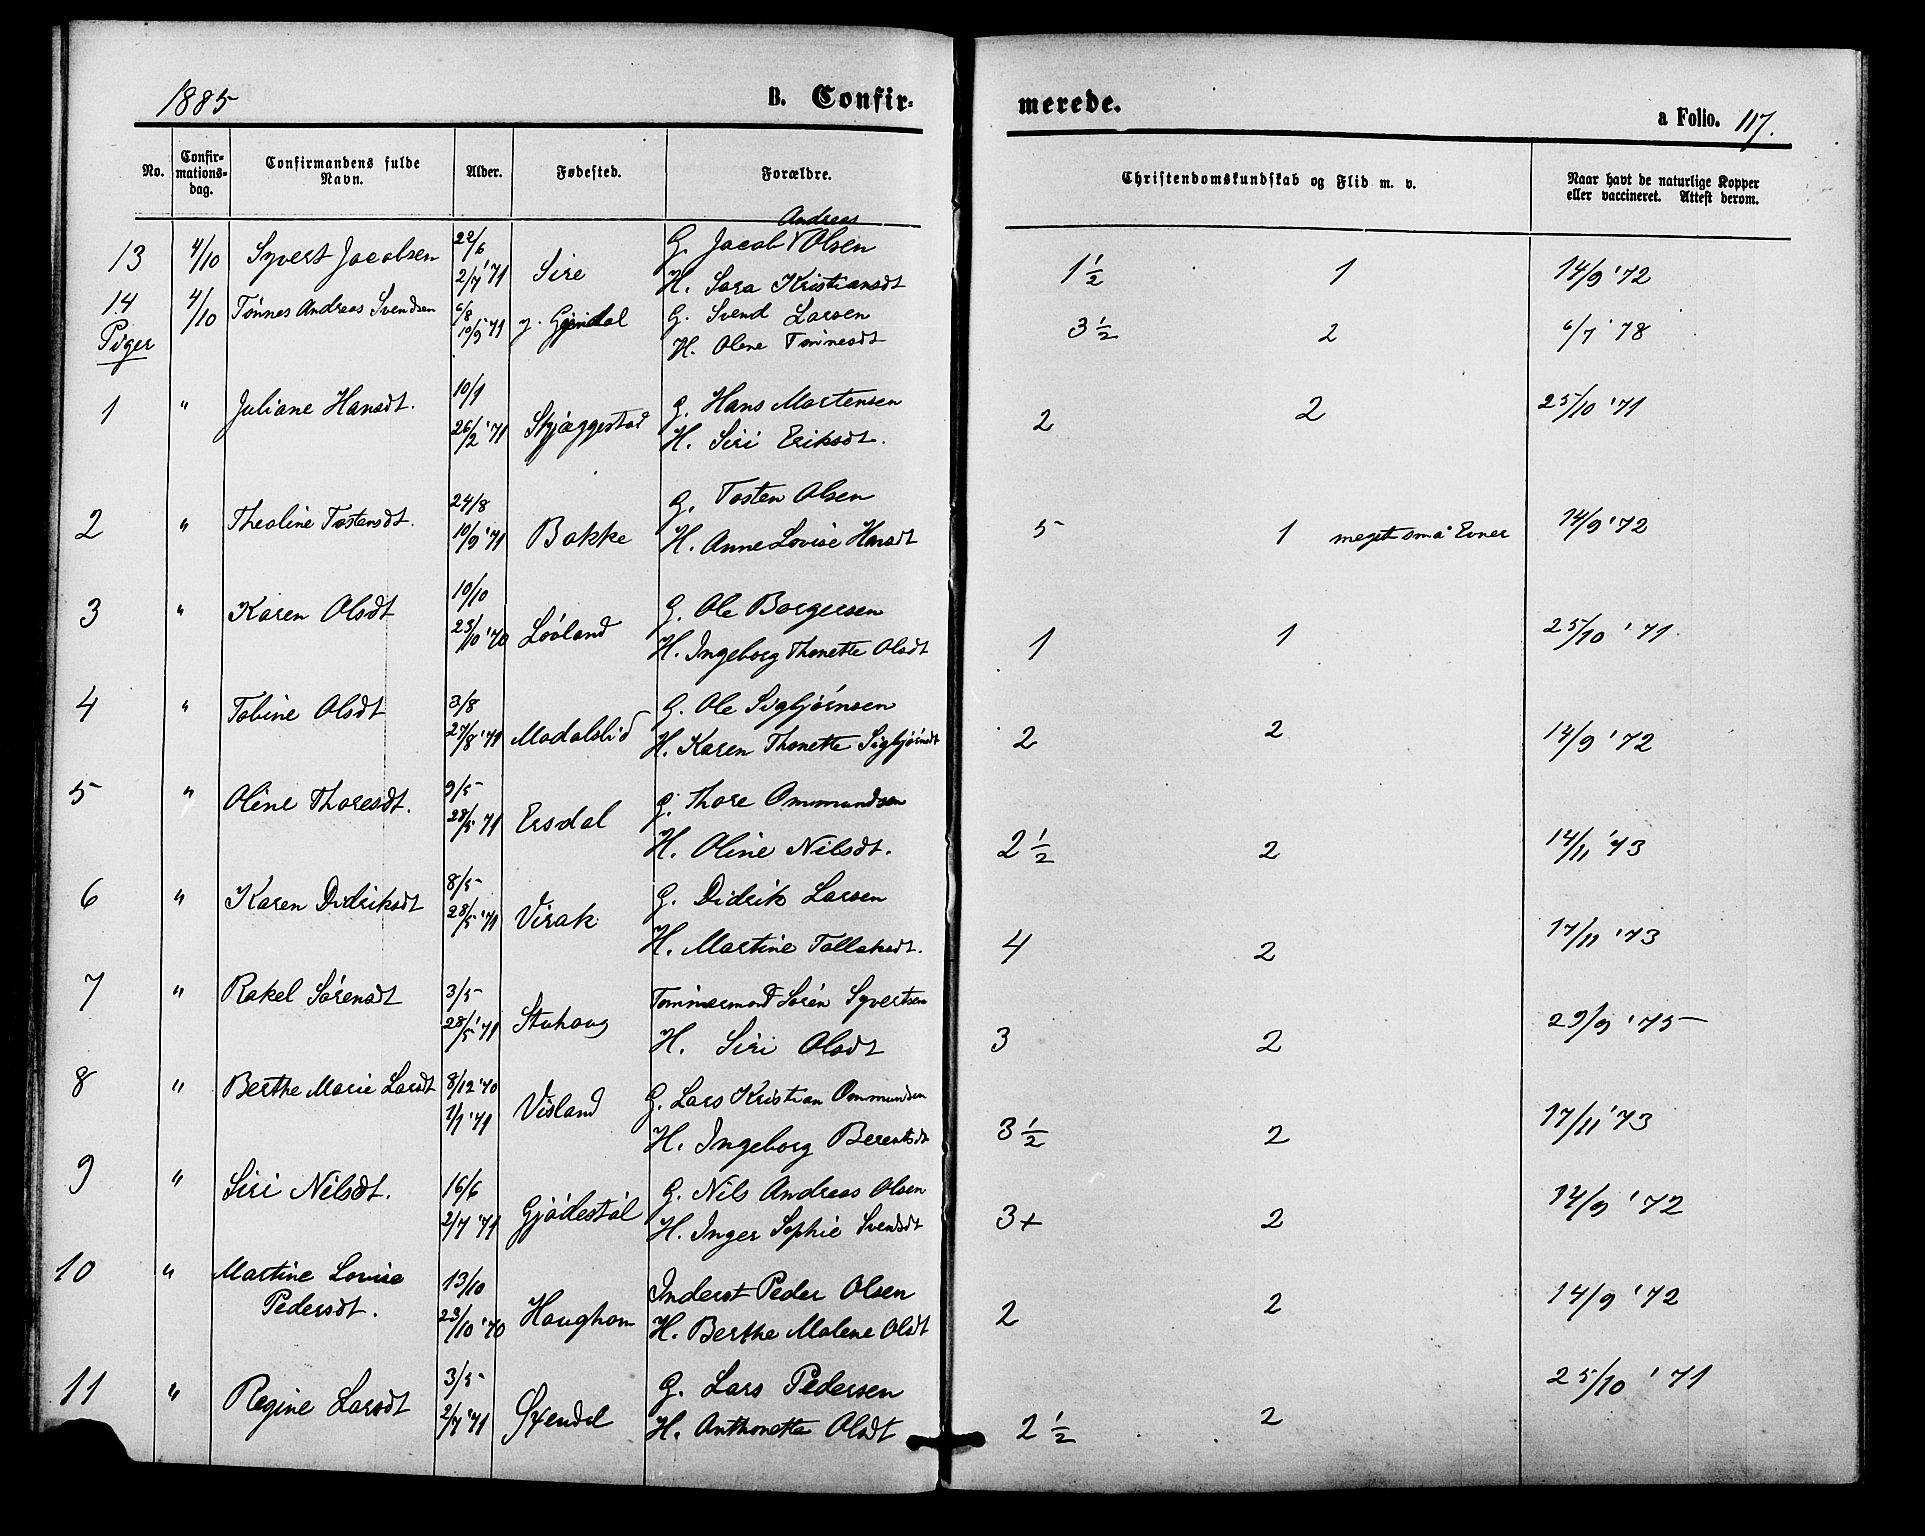 1885 B. Confir-merede. a Folio. 117.
No. Confir-mations-dag. Confirmandens fulde Navn. Alder. Fødested. Forældre. Christendomskundskab og Flid m. v. Naar havt de naturlige Kopper eller vaccineret. Attest derom.
Andreas
13 4/10 Syvert Jacobsen 22/6 Sire G. Jacob Olsen 1½ 1 14/9 '72
2/7 '71 H. Sara Kristiansdt
14 4/10 Tønnes Andreas Svendsen 6/8 G. Svend Larsen 3½ 2 6/7 '78
10/9 '71 H. Olene Tønnesdt
Piger
1 " Juliane Hansdt. 10/1 Skjæggestad G. Hans Mortensen 2 2 25/10 '71
26/2 '71 H. Siri Eriksdt.
2 " Theoline Tostensdt. 24/8 Bakke G. Tosten Olsen 5 1 meget små Evner 14/9 '72
10/9 '71 H. Anne Lovise Hansdt
3 " Karen Olsdt 10/10 Løvland G. Ole Borgersen 1 1 25/10 '71.
23/10 '70 H. Ingeborg Thonette Olsdt
4 " Tobine Olsdt 3/8 Modalslid G. Ole Sigbjørnsen 2 2 14/9 '72
27/8 '71 H. Karen Thonette Sigbjørnsdt
5 " Oline Thoresdt. 9/5 Ersdal G. Thore Ommundsen 2½ 2 14/11 '73
28/5 '71 H. Oline Nilsdt.
6 " Karen Didriksdt 8/5 Virak G. Didrik Larsen 4 2 17/11 '73
28/5 '71 H. Martine Tollaksdt.
7 " Rakel Sørensdt 3/5 Stuhaug Tømmermand Søren Syvertsen 3 2 29/9 '75
28/5 '71 H. Siri Olsdt
8 " Berthe Marie Larsdt 8/12 '70 Visland G. Lars Kristian Ommundsen 3½ 2 17/11 '73
1/1 '71 H. Ingeborg Berentsdt
9 " Siri Nilsdt. 16/6 Gjødestøl G. Nils Andreas Olsen 3+ 2 14/9 '72
2/7 '71 H. Inger Sophie Svendsdt
10 " Martine Lovise 13/10 Haughom Inderst Peder Olsen 2 2 14/9 '72
Pedersdt. 23/10 '70 H. Berthe Malene Olsdt
11 " Regine Larsdt 3/5 Øxendal G. Lars Pedersen 2½ 2 25/10 '71
2/7 '71 H. Anthonette Olsdt